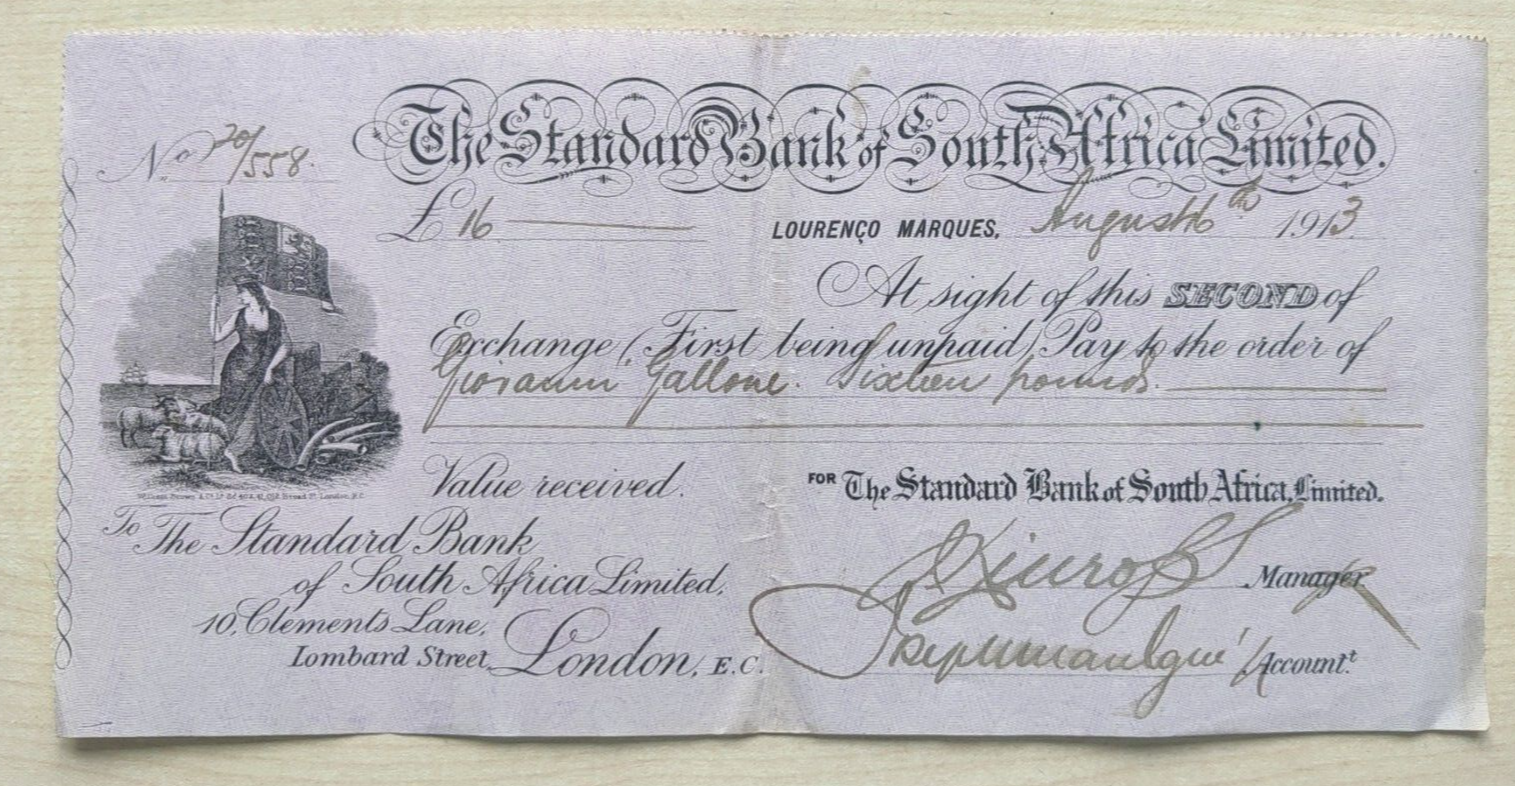 The Standard Bank of South Africa Limited.
No. 20/558.
£16
LOURENÇO MARQUES, August 6th 1913
At sight of this SECOND of
Exchange (First being unpaid) Pay to the order of
Giovanni Gallone. Sixteen pounds.
Value received.
FOR The Standard Bank of South Africa, Limited.
To The Standard Bank
of South Africa Limited,
Manager
10, Clements Lane,
Lombard Street, London, E.C.
Account.t